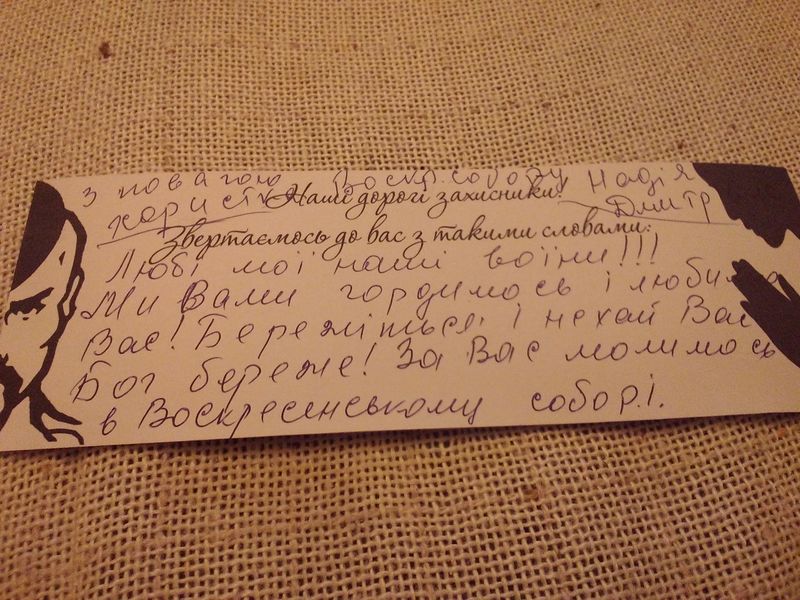 З повагою Воскр. собору Надія
хористка Дмитр
Наші дорогі захисники!
Звертаємось до вас з такими словами:
Любі мої наші воїни!!!
Ми Вами гордимось і любимо
Вас! Бережіться і нехай Вас
Бог береже! За Вас молимось
в Воскресенському соборі.